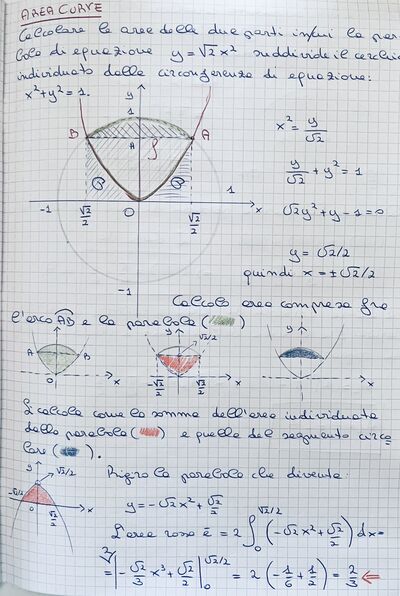 AREA CURVE
Calcolare le aree delle due parti in cui la para
bola di equazione y = √2 x² suddivide il cerchio
individuato dalla circonferenza di equazione:
x² + y² = 1.
y
1
B
A
A
-1
O
1
x
√2/2
√2/2
-1
x² = y/√2
y/√2 + y² = 1
√2y² + y - 1 = 0
y = √2/2
quindi x = ±√2/2
Calcolo area compresa fra
l'arco AB e la parabola ( )
y
A
B
O
x
y
√2/2
-√2/2
√2/2
x
y
x
Si calcola come la somma dell'area individuata
dalla parabola ( ) e quella del segmento circo
lare ( ).
y
√2/2
-√2/2
O
√2/2
x
Rigiro la parabola che diventa:
y = -√2x² + √2/2
L'area rossa è = 2 ∫₀^(√2/2) (-√2x² + √2/2) dx =
= 2 | -√2/3 x³ + √2/2 |₀^(√2/2) = 2 (-1/6 + 1/2) = 2/3 ⇐